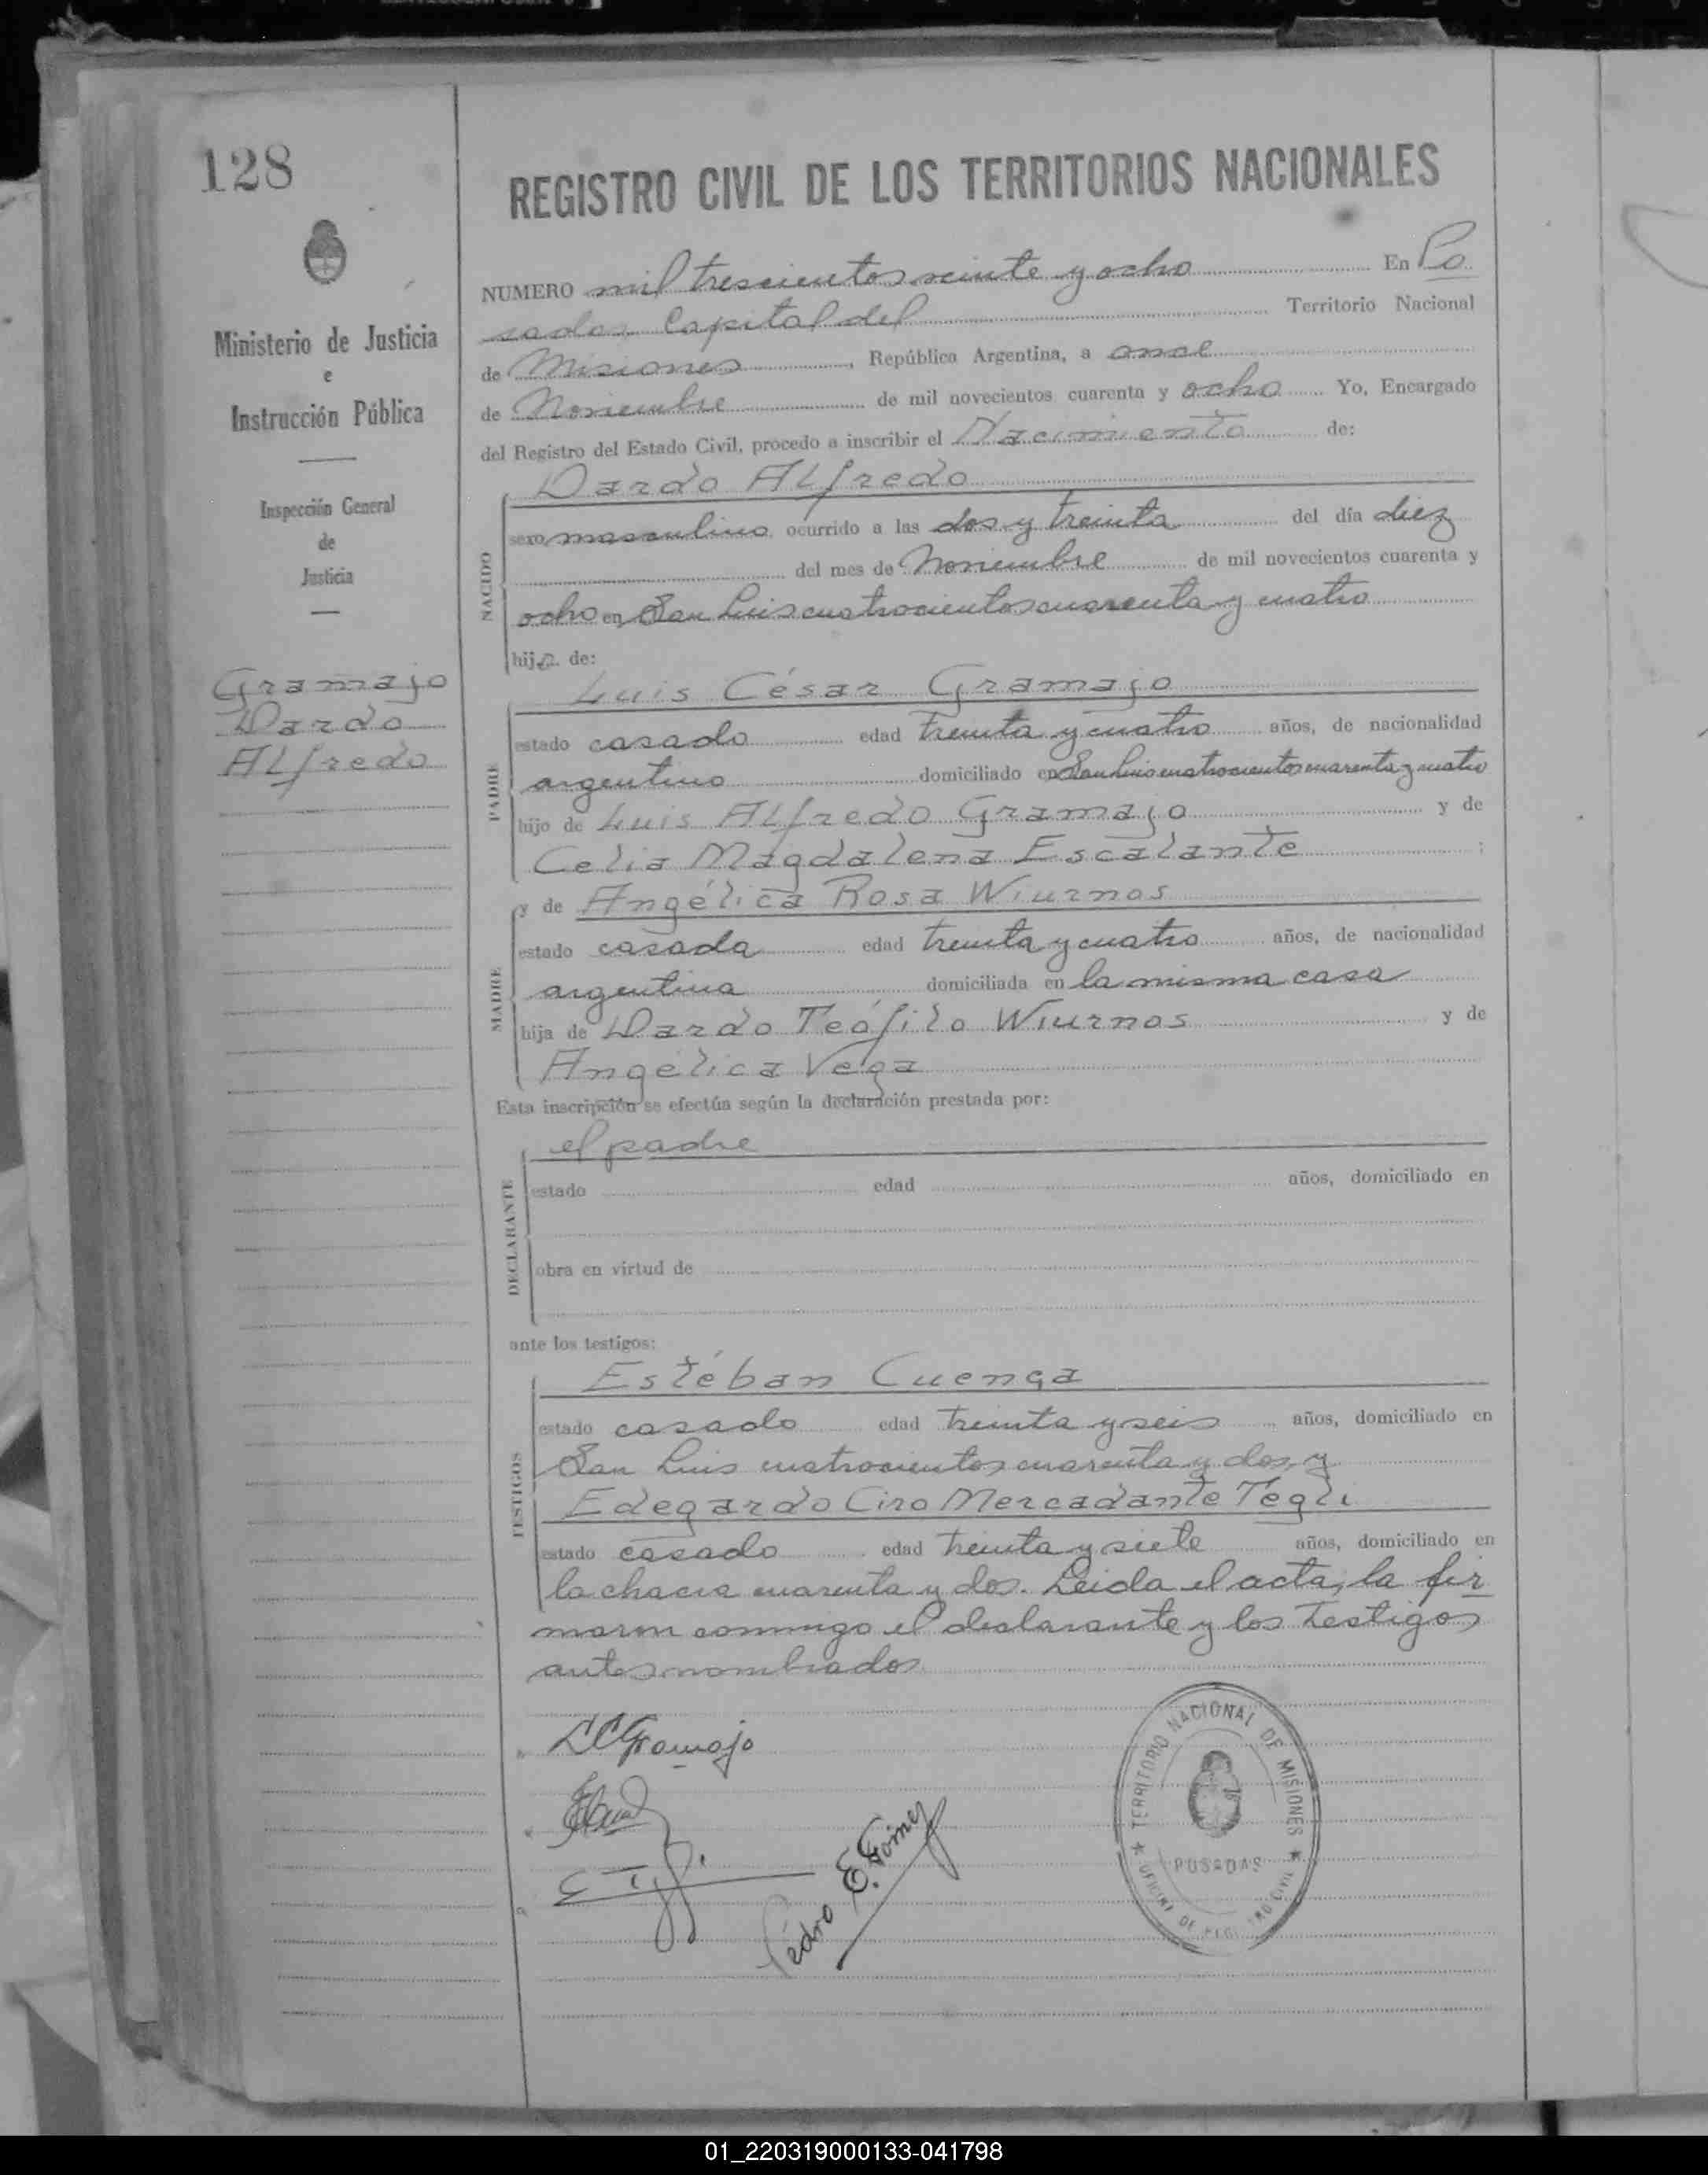 128
REGISTRO CIVIL DE LOS TERRITORIOS NACIONALES
Ministerio de Justicia
e
Instrucción Pública
Inspección General
de
Justicia
Gramajo
Dardo
Alfredo
NUMERO mil trescientos veinte y ocho En Po
sadas Capital del Territorio Nacional
de Misiones, República Argentina, a once
de Noviembre de mil novecientos cuarenta y ocho Yo, Encargado
del Registro del Estado Civil, procedo a inscribir el Nacimiento de:
Dardo Alfredo
NACIDO
sexo masculino, ocurrido a las dos y treinta del día diez
del mes de Noviembre de mil novecientos cuarenta y
ocho en San Luis cuatrocientos cuarenta y cuatro
hijo de:
Luis César Gramajo
PADRE
estado casado edad treinta y cuatro años, de nacionalidad
argentino domiciliado en San Luis cuatrocientos cuarenta y cuatro
hijo de Luis Alfredo Gramajo y de
Celia Magdalena Escalante ;
y de Angélica Rosa Wiurnos
MADRE
estado casada edad treinta y cuatro años, de nacionalidad
argentina domiciliada en la misma casa
hija de Dardo Teófilo Wiurnos y de
Angélica Vega
Esta inscripción se efectúa según la declaración prestada por:
el padre
DECLARANTE
estado edad años, domiciliado en
obra en virtud de
ante los testigos:
Estéban Cuenca
TESTIGOS
estado casado edad treinta y seis años, domiciliado en
San Luis cuatrocientos cuarenta y dos, y
Edegardo Ciro Mercadante Tegli
estado casado edad treinta y siete años, domiciliado en
la chacra cuarenta y dos. Leida el acta, la fir
maron conmigo el declarante y los testigos
antes nombrados
LCGramajo
Pedro E. Gómez
TERRITORIO NACIONAL DE MISIONES
POSADAS
OFICINA DE REGISTRO CIVIL
01_220319000133-041798